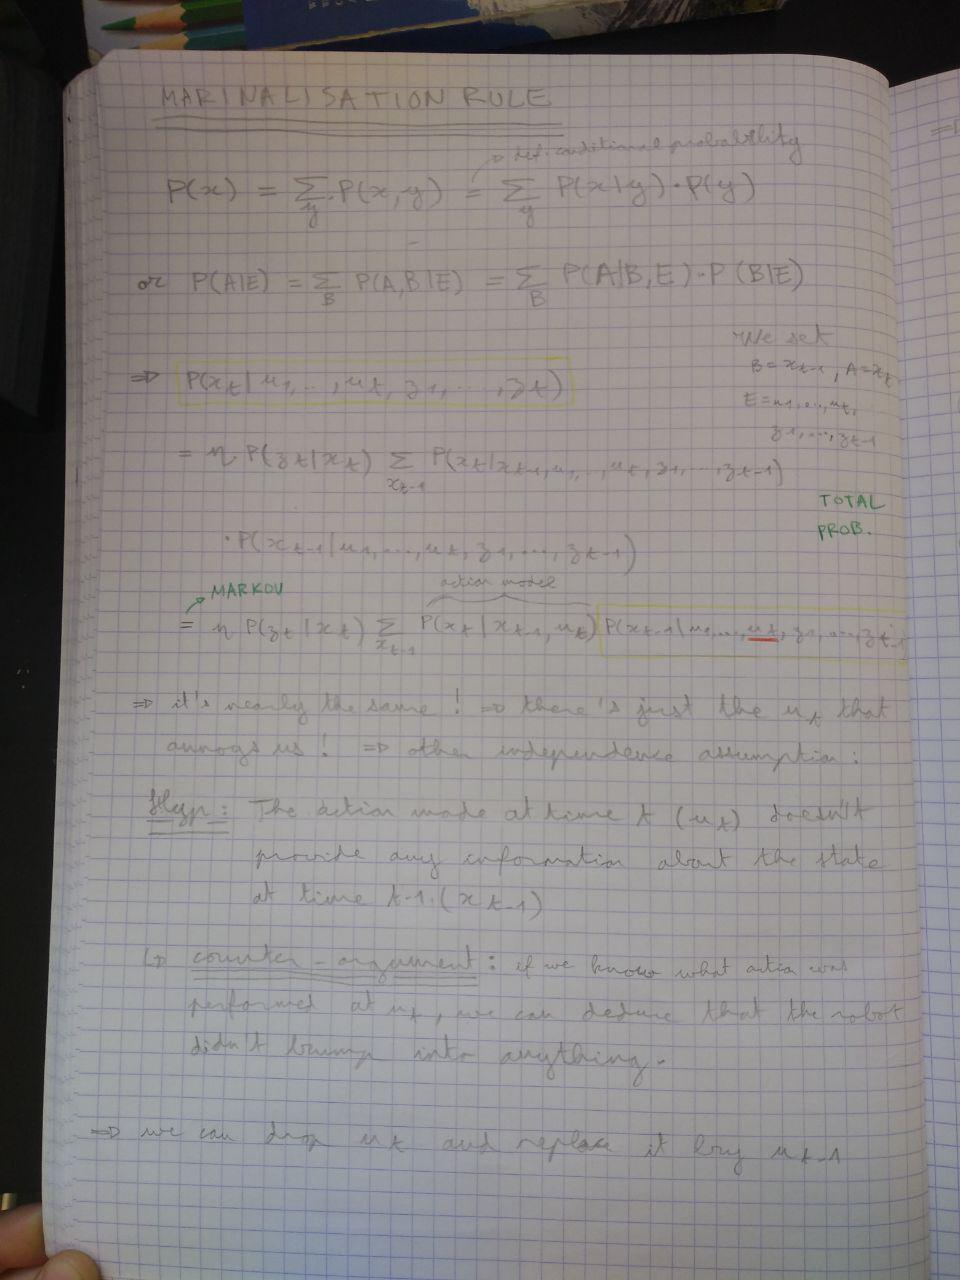 MARINALISATION RULE
→ def. conditional probability
P(x) = Σ_y P(x,y) = Σ_y P(x|y)·P(y)
or P(A|E) = Σ_B P(A,B|E) = Σ_B P(A|B,E)·P(B|E)
We set
B = x_{t-1}, A = x_t
⇒ P(x_t | u_1,..., u_t, z_1,..., z_t)
E = u_1,..., u_t,
z_1,..., z_{t-1}
= η P(z_t|x_t) Σ_{x_{t-1}} P(x_t|x_{t-1}, u_1,..., u_t, z_1,..., z_{t-1})
TOTAL
PROB.
·P(x_{t-1}|u_1,..., u_t, z_1,..., z_{t-1})
MARKOV
action model
= η P(z_t|x_t) Σ_{x_{t-1}} P(x_t|x_{t-1}, u_t) P(x_{t-1}|u_1,..., u_t, z_1,..., z_{t-1}
⇒ it's nearly the same! ⇒ there's just the u_t that
annoys us! ⇒ other independence assumption:
Hyp: The action made at time t (u_t) doesn't
provide any information about the state
at time t-1. (x_{t-1})
↳ counter-argument: if we know what action was
performed at u_t, we can deduce that the robot
didn't bump into anything.
⇒ we can drop u_t and replace it by u_{t-1}